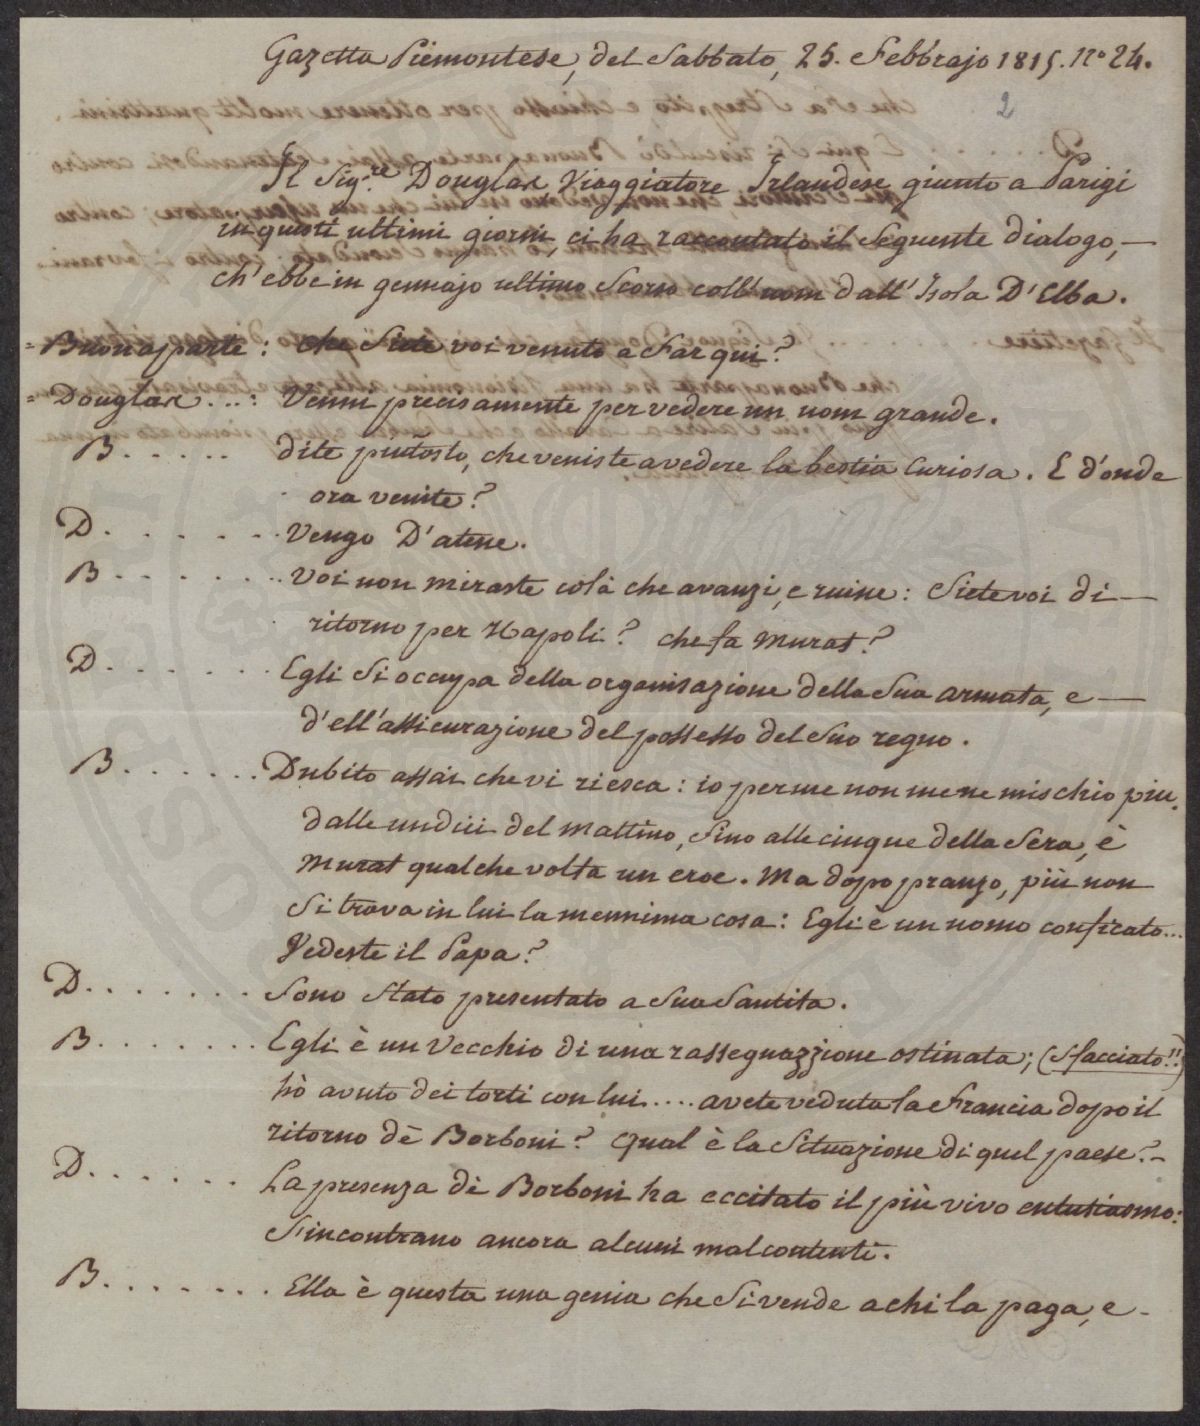 Gazetta Piemontese, del Sabbato, 25. Febbrajo 1815. N.° 24.
2
Il Sig.re Douglas, Viaggiatore Irlandese, giunto a Parigi
in questi ultimi giorni, ci ha raccontato il Seguente dialogo, —
ch'ebbe in gennajo ultimo Scorso coll'uom dall'Isola D'Elba.
= Buonaparte: che Siete voi venuto a Far qui?
= Douglas ...: Venni precisamente per vedere un uom grande.
B. . . . . dite piuttosto, che veniste a vedere la bestia Curiosa. E d'onde
ora venite?
D. . . . . . . Vengo D'atene.
B. . . . . . . Voi non miraste colà che avanzi, e ruine: Siete voi di —
ritorno per Napoli? che fa Murat?
D. . . . . . . Egli Si occupa della organisazione della Sua armata, e —
d'ell'assicurazione del possesso del Suo regno.
B. . . . . . . Dubito assai che vi riesca: io per me non me ne mischio piu.
dalle undici del mattino, Sino alle cinque della Sera, è
Murat qualche volta un eroe. Ma dopo pranzo, più non
Si trova in lui la mennima cosa: Egli è un uomo conficato...
Vedeste il Papa?
D. . . . . . . Sono Stato presentato a Sua Santita.
B. . . . . . . . Egli è un Vecchio di una rassegnazzione ostinata; (Sfacciato!!)
hò avuto dei torti con lui.... avete veduta la Francia dopo il
ritorno dè Borboni? Qual è la Situazione di quel paese? -
D. . . . . . La presenza dè Borboni ha eccitato il più vivo entusiasmo:
S'incontrano ancora alcuni malcontenti.
B. . . . . . . Ella è questa una genia che Si vende a chi la paga, e -